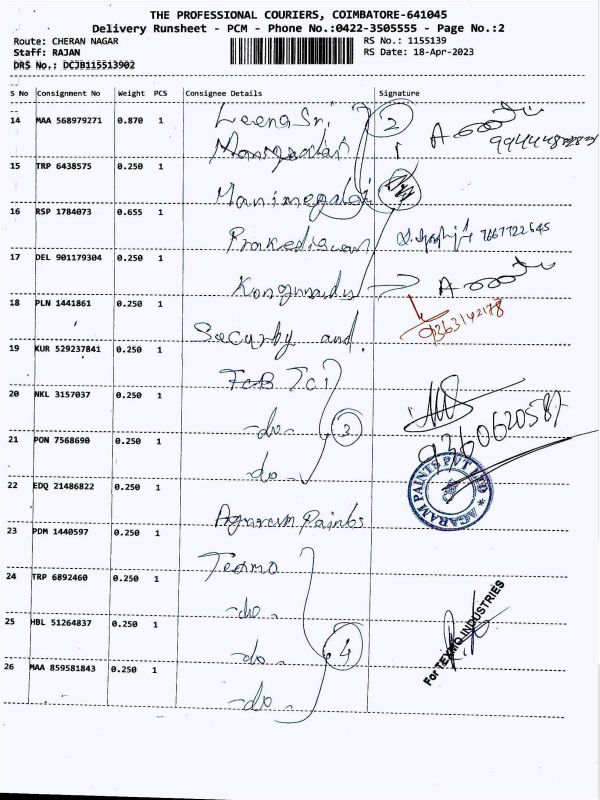 THE PROFESSIONAL COURIERS, COIMBATORE-641045
Delivery Runsheet - PCM - Phone No.:0422-3505555 - Page No.:2
Route: CHERAN NAGAR RS No.: 1155139
Staff: RAJAN RS Date: 18-Apr-2023
DRS No.: DCJB115513902
S No Consignment No Weight PCS Consignee Details Signature
14 MAA 568979271 0.870 1 Leena Sri 2
15 TRP 6438575 0.250 1
Manimegalai
16 RSP 1784073 0.655 1
7667722645
17 DEL 901179304 0.250 1 Kongunadu
18 PLN 1441861 0.250 1 Security and 9363142178
19 KUR 529237841 0.250 1 FCB Tci
20 NKL 3157037 0.250 1 -do- 3 9360620587
21 PON 7568690 0.250 1 -do-
22 EDQ 21486822 0.250 1 Agaram Paints AGARAM PAINTS PVT LTD
23 PDM 1440597 0.250 1 Texmo
24 TRP 6892460 0.250 1 -do-
25 HBL 51264837 0.250 1 -do- 4 For TEXMO INDUSTRIES
26 MAA 859581843 0.250 1 -do-